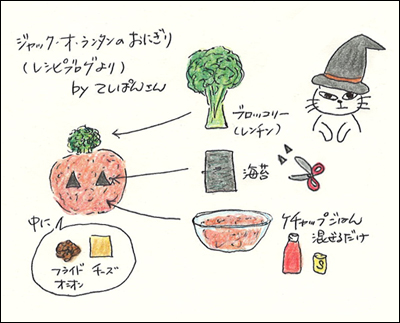 ジャック・オ・ランタンのおにぎり
(レシピブログより)
by てしぱんさん
ブロッコリー
(レンチン)
海苔
ケチャップごはん
混ぜるだけ
中に
フライド
オニオン
チーズ
S